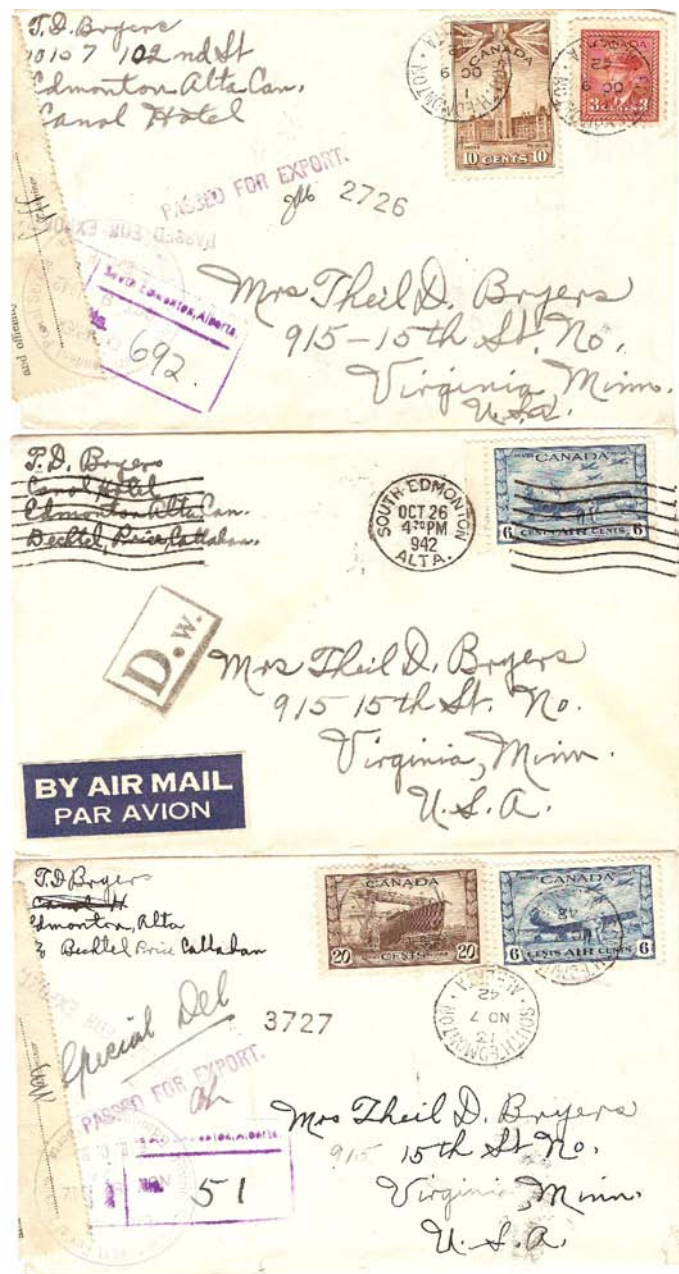 T.D. Bryers
10107 102nd St
Edmonton Alta Can.
Canol Hotel
CANADA
10 CENTS 10
CANADA
3 CENTS 3
OC 9
42
PASSED FOR EXPORT.
2726
PASSED FOR EXPORT
South Edmonton, Alberta
No.
692.
and officially
Mrs Theil D. Bryers
915-15th St. No.
Virginia, Minn.
U.S.A.
T.D. Bryers
Canol Hotel
Edmonton Alta Can.
Bechtel, Price, Callahan.
SOUTH EDMONTON
OCT 26
4 30 PM
942
ALTA.
CANADA
6 CENTS AIR CENTS 6
D.W.
Mrs Theil D. Bryers
915 15th St. No.
Virginia, Minn.
U.S.A.
BY AIR MAIL
PAR AVION
T.D Bryers
Canol H
Edmonton, Alta
% Bechtel Price Callahan
CANADA
20 CENTS 20
CANADA
6 CENTS AIR CENTS 6
SOUTH EDMONTON
13
NO 7
42
ALBERTA
Special Del
3727
PASSED FOR EXPORT.
Edmonton, Alberta
No.
51
Mrs Theil D. Bryers
915 15th St No.
Virginia, Minn.
U.S.A.